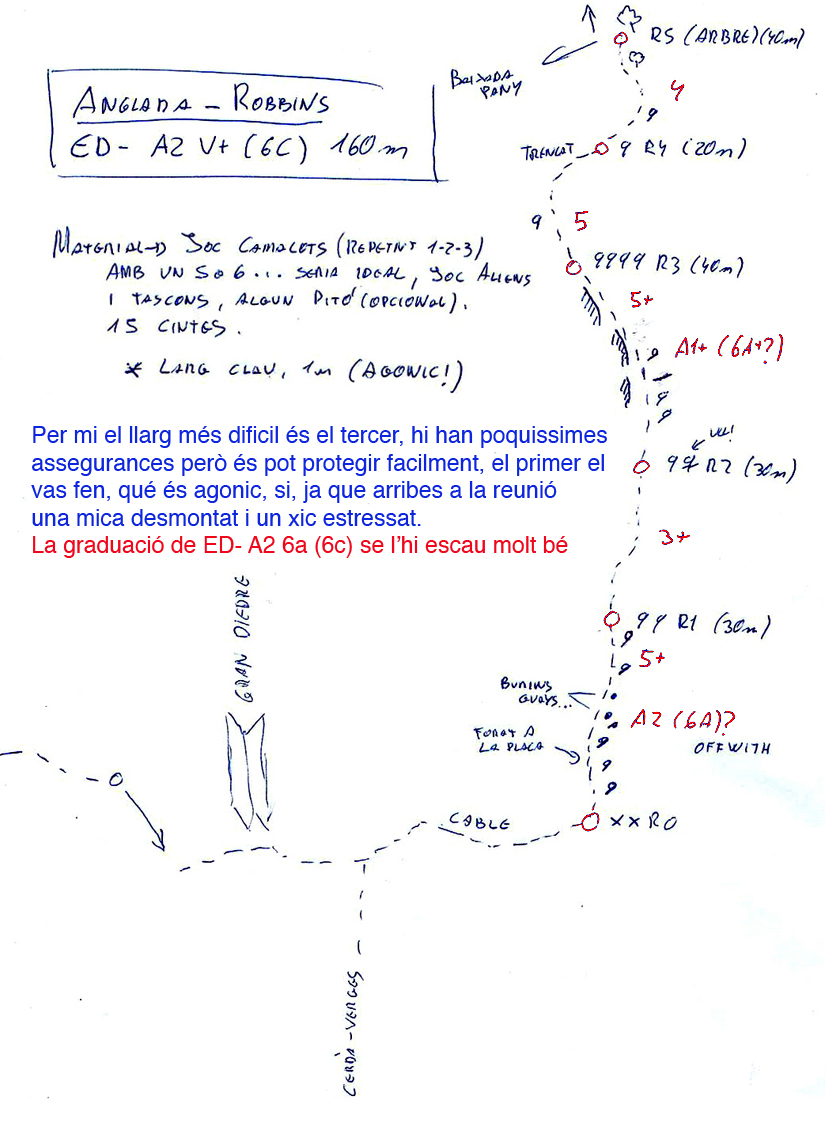 ANGLADA - ROBBINS
ED- A2 V+ (6C) 160m
R5 (ARBRE)(40m)
BAIXADA
PANY
4
TRENCAT
R4 (20m)
5
R3 (40m)
5+
A1+ (6A+?)
MATERIAL→ JOC CAMALOTS (REPETINT 1-2-3)
AMB UN 5 o 6... SERIA IDEAL, JOC ALIENS
I TASCONS, ALGUN PITÓ (OPCIONAL).
15 CINTES.
* LLARG CLAU, 1er (AGONIC!)
Per mi el llarg més dificil és el tercer, hi han poquissimes
assegurances però és pot protegir facilment, el primer el
vas fen, qué és agonic, si, ja que arribes a la reunió
una mica desmontat i un xic estressat.
La graduació de ED- A2 6a (6c) se l'hi escau molt bé
ULL!
R2 (30m)
3+
R1 (30m)
5+
GRAN DIEDRE
BURINS
GUAYS...
A2 (6A)?
OFFWITH
FORAT A
LA PLACA
CABLE
XX R0
CERDÀ-VERGES